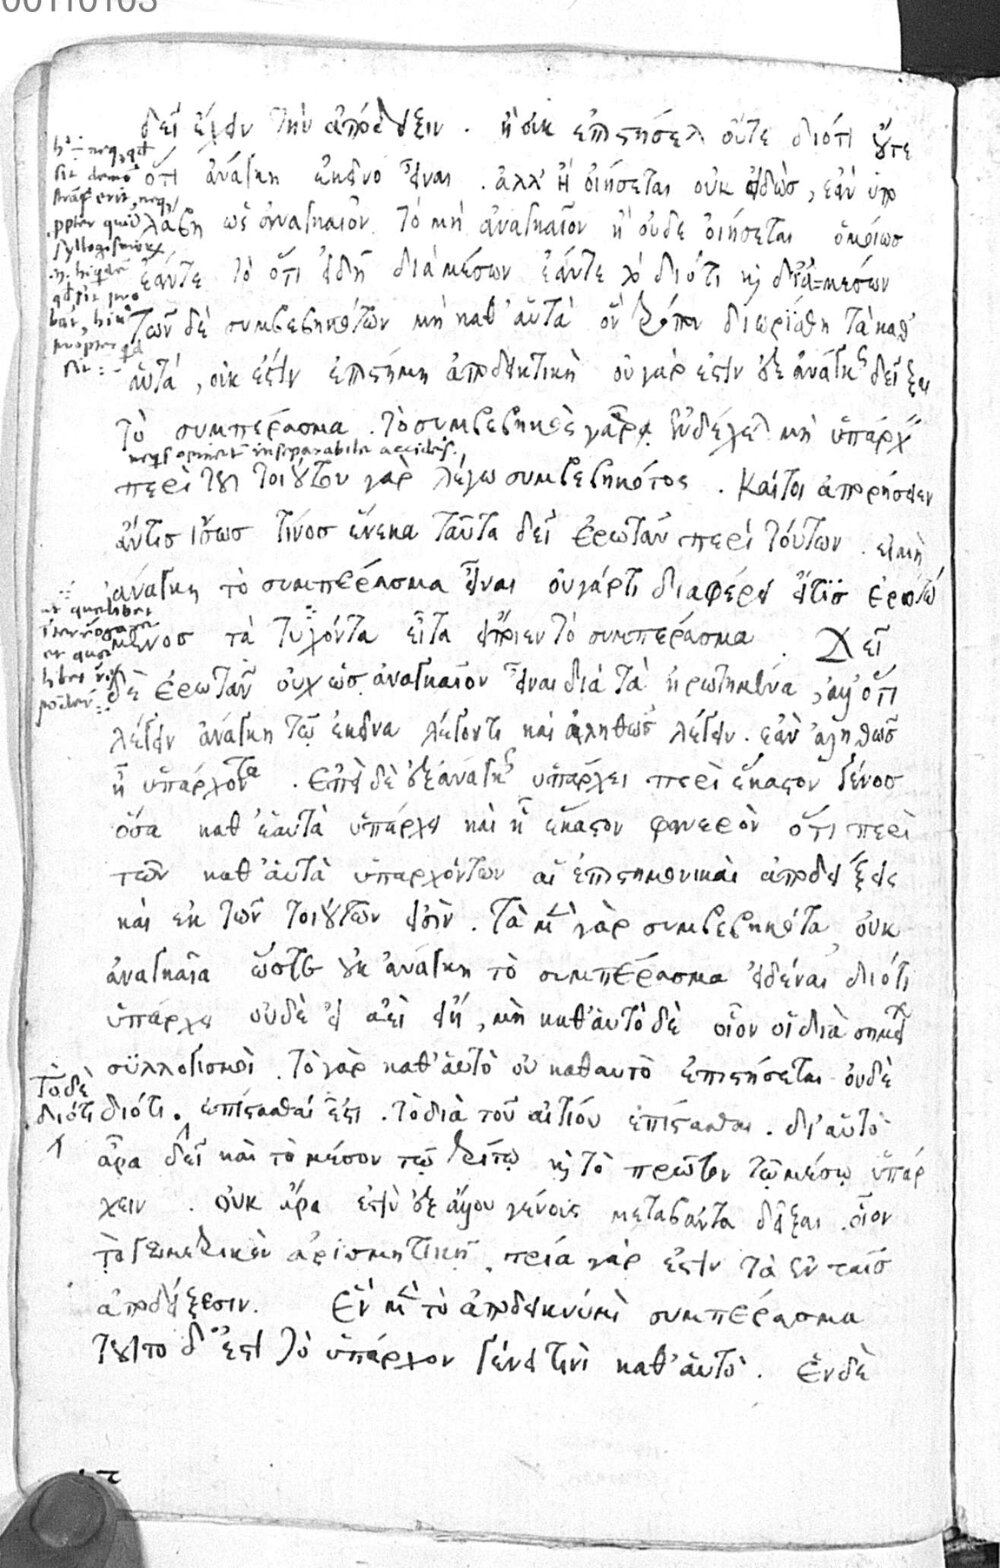 00110103
δεῖ ἔχειν τὴν ἀπόδειξιν . ἢ οὐκ ἐπιστήσεται οὔτε διότι οὔτε
ὅτι ἀνάγκη ἐκεῖνο εἶναι . ἀλλ' ἢ οἰήσεται οὐκ εἰδὼς, ἐὰν ὑπο
λάβη ὡς ἀναγκαῖον τὸ μὴ ἀναγκαῖον ἢ οὐδὲ οἰήσεται ὁμοίως
ἐάντε τὸ ὅτι εἰδῇ διὰ μέσων ἐάντε τὸ διότι καὶ δι' ἀμέσων
τῶν δὲ συμβεβηκότων μὴ καθ' αὑτὰ ὃν τρόπον διωρίσθη τὰ καθ'
αὑτὰ, οὐκ ἔστιν ἐπιστήμη ἀποδεικτικὴ οὐ γὰρ ἔστιν ἐξ ἀνάγκης δεῖξαι
τὸ συμπέρασμα . τὸ συμβεβηκὸς γὰρ ἐνδέχεται μὴ ὑπάρχειν
inseparabile
περὶ τοῦ τοιούτου γὰρ λέγω συμβεβηκότος . καίτοι ἀπορήσειεν
ἄντις ἴσως τίνος ἕνεκα ταῦτα δεῖ ἐρωτᾶν περὶ τούτων . εἰ μὴ
ἀνάγκη τὸ συμπέρασμα εἶναι οὐγάρτι διαφέρει εἴτις ἐρωτώ
μενος τὰ τυχόντα εἶτα εἴπειεν τὸ συμπέρασμα . Δεῖ
δὲ ἐρωτᾶν οὐχ ὡς ἀναγκαῖον εἶναι διὰ τὰ ἠρωτημένα, ἀλλ' ὅτι
λέγειν ἀνάγκη τῷ ἐκεῖνα λέγοντι καὶ ἀληθῶς λέγειν . ἐὰν ἀληθῶς
ᾖ ὑπάρχοντα . Ἐπεὶ δὲ ἐξ ἀνάγκης ὑπάρχει περὶ ἕκαστον γένος
ὅσα καθ' ἑαυτὰ ὑπάρχει καὶ ᾗ ἕκαστον φανερὸν ὅτι περὶ
τῶν καθ' αὑτὰ ὑπαρχόντων αἱ ἐπιστημονικαὶ ἀποδείξεις
καὶ ἐκ τῶν τοιούτων εἰσὶν . τὰ μὲν γὰρ συμβεβηκότα οὐκ
ἀναγκαῖα ὥστε οὐκ ἀνάγκη τὸ συμπέρασμα εἰδέναι διότι
ὑπάρχει οὐδὲ εἰ ἀεὶ εἴη, μὴ καθ' αὑτὸ δὲ οἷον οἱ διὰ σημείων
συλλογισμοὶ . τὸ γὰρ καθ' αὑτὸ οὐ καθαυτὸ ἐπιστήσεται οὐδὲ
τὸ δὲ
διότι
διότι . ἐπίστασθαί ἐστι . τὸ διὰ τοῦ αἰτίου ἐπίστασθαι . δι' αὑτὸ
ἄρα δεῖ καὶ τὸ μέσον τῷ τρίτῳ καὶ τὸ πρῶτον τῷ μέσῳ ὑπάρ
χειν . οὐκ ἄρα ἐστὶν ἐξ ἄλλου γένους μεταβάντα δεῖξαι . οἷον
τὸ γεωμετρικὸν ἀριθμητικῇ . τρία γὰρ ἐστιν τὰ ἐν ταῖς
ἀποδείξεσιν . Ἓν μὲν τὸ ἀποδεικνύμενον συμπέρασμα
τοῦτο δ' ἐστὶ τὸ ὑπάρχον γένει τινὶ καθ' αὑτὸ . Ἓν δὲ